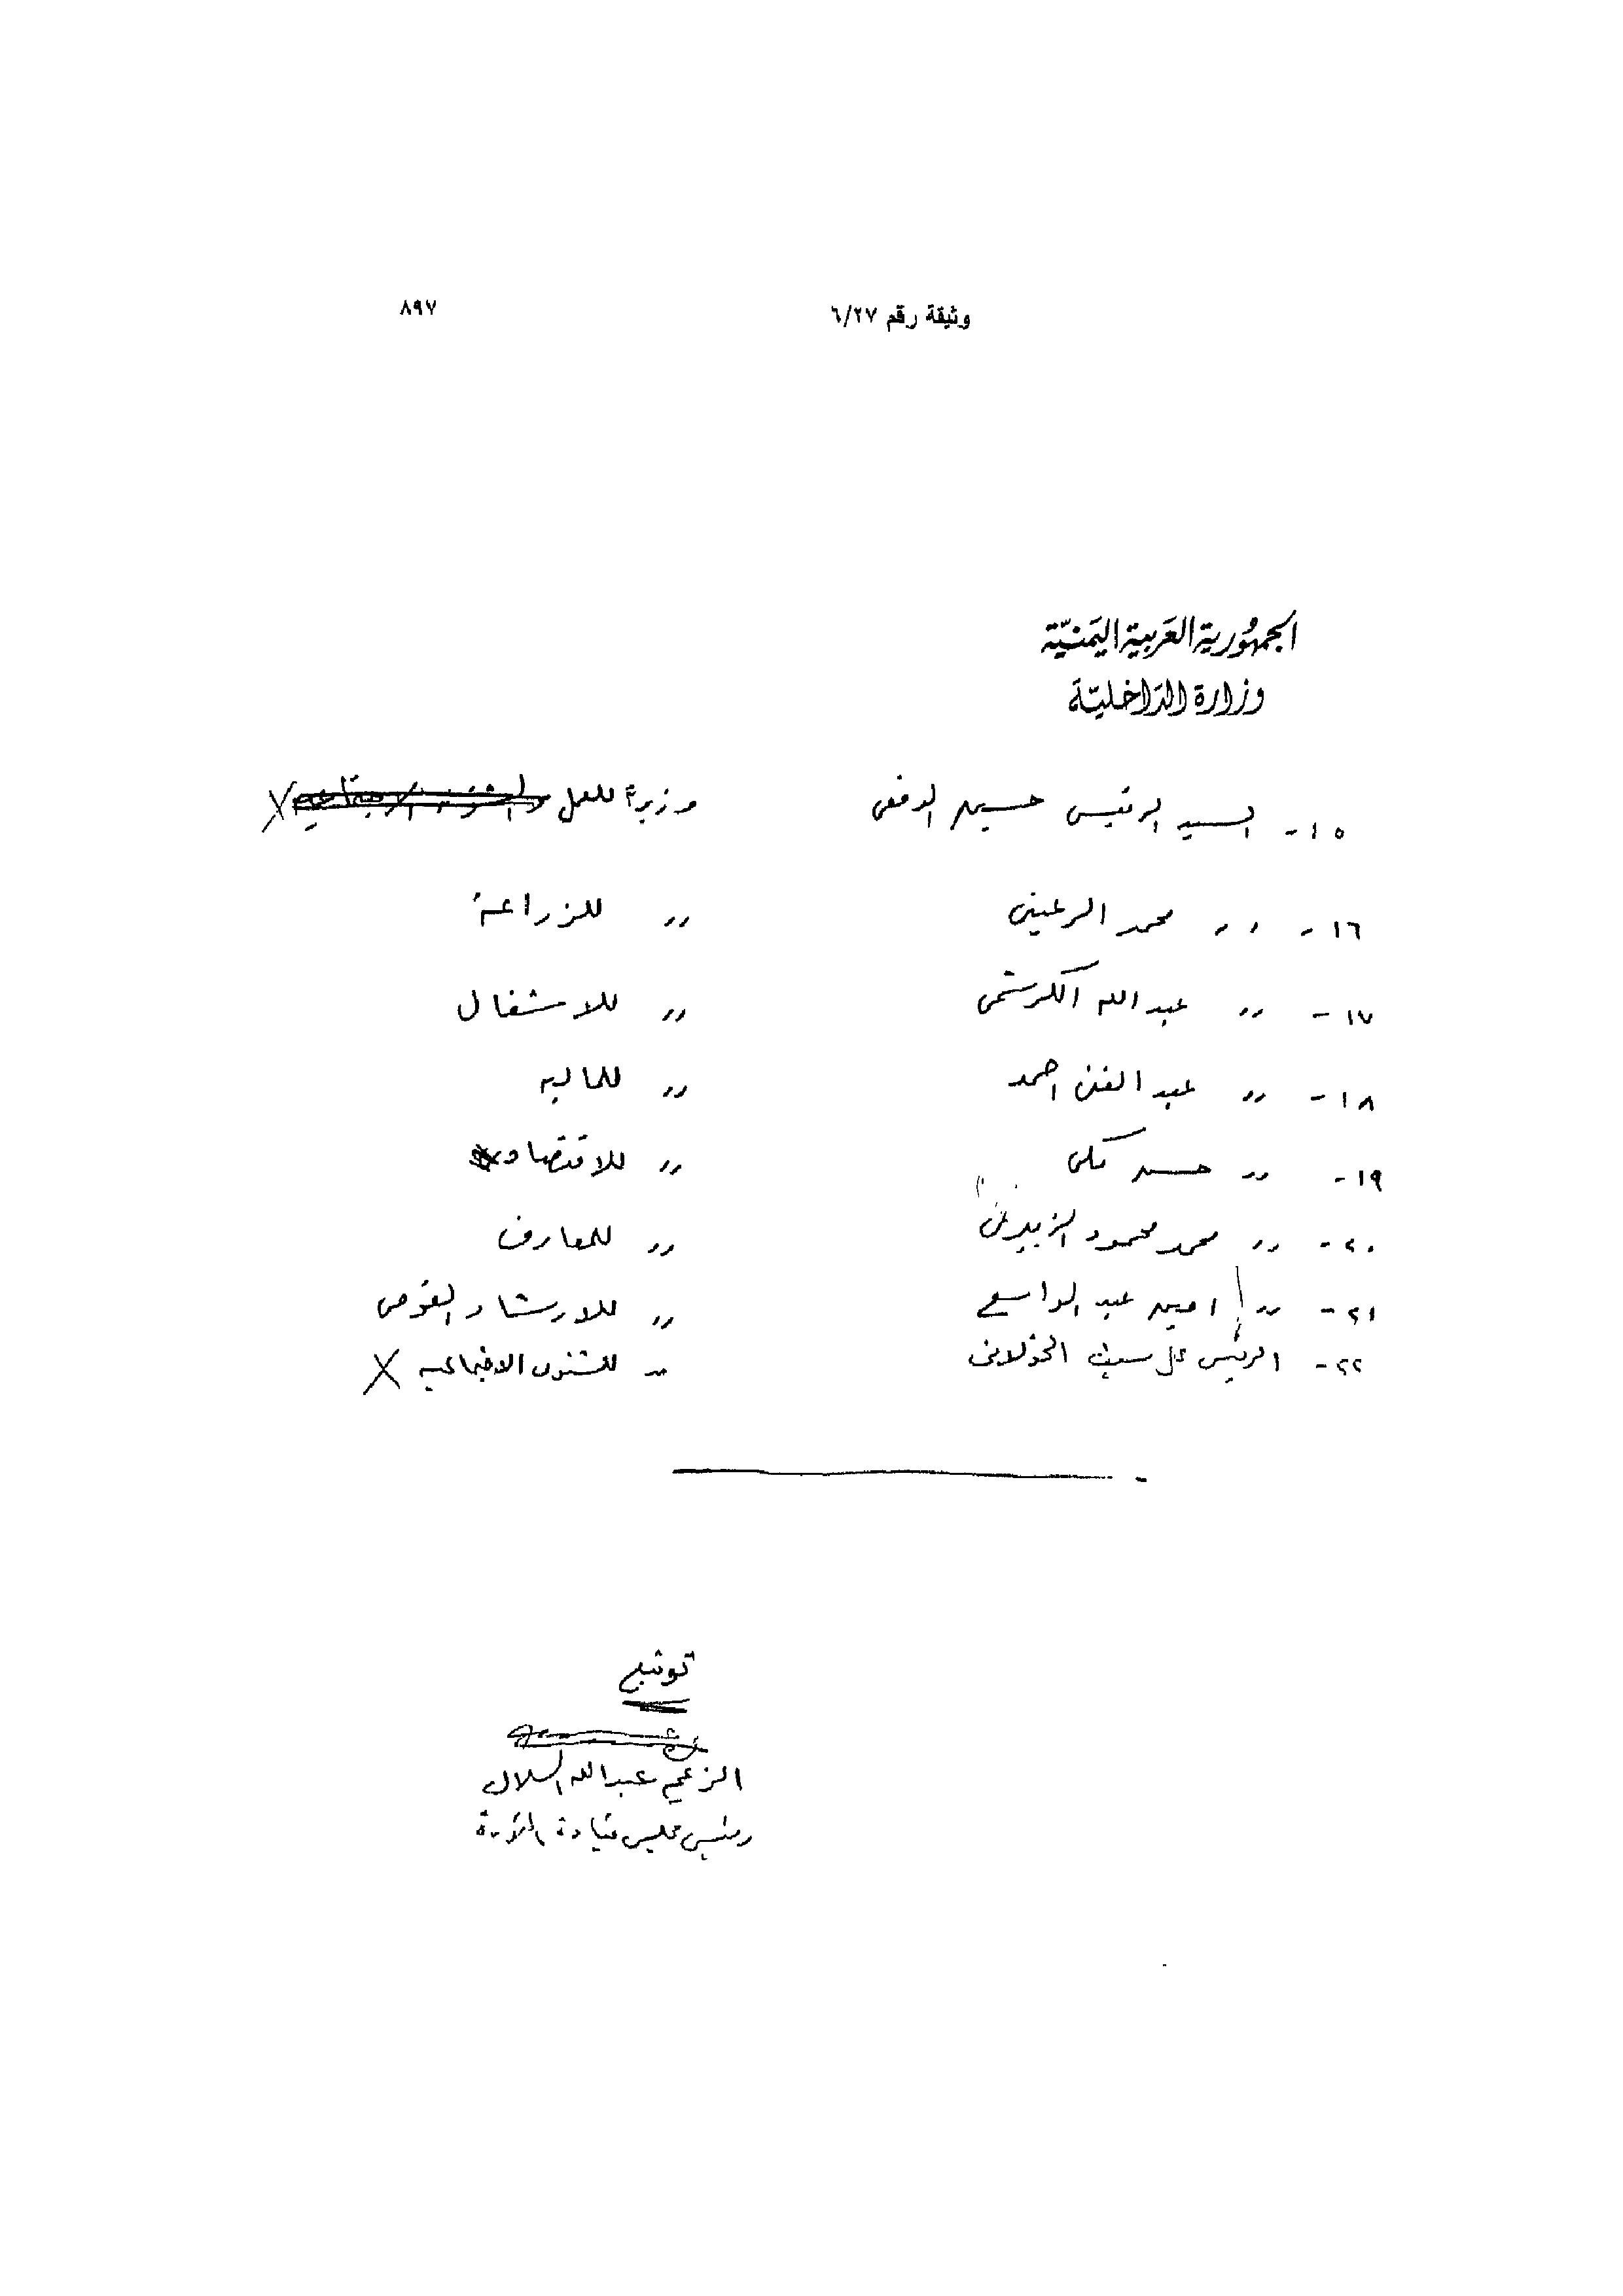 وثيقة رقم ٦/٢٧ ٨٩٧
الجمهورية العربية اليمنية
وزارة الداخلية
١٥- السيد الرئيس حسين الدفعي وزيراً للعمل والشئون الاجتماعيه
١٦- ,, محمد الرعيني ,, للزراعة
١٧- ,, عبدالله الكرشمي ,, للاشغال
١٨- ,, عبد الغني احمد ,, للماليه
١٩- ,, حسن مكي ,, للاقتصاد
٢٠- ,, محمد محمود الزبيري ,, للمعارف
٢١- ,, امين عبد الواسع ,, للارشاد القومي
٢٢- الرئيس علي سيف الخولاني ,, للشئون الاجتماعيه
توقيع
الزعيم عبدالله السلال
رئيس مجلس قيادة الثورة